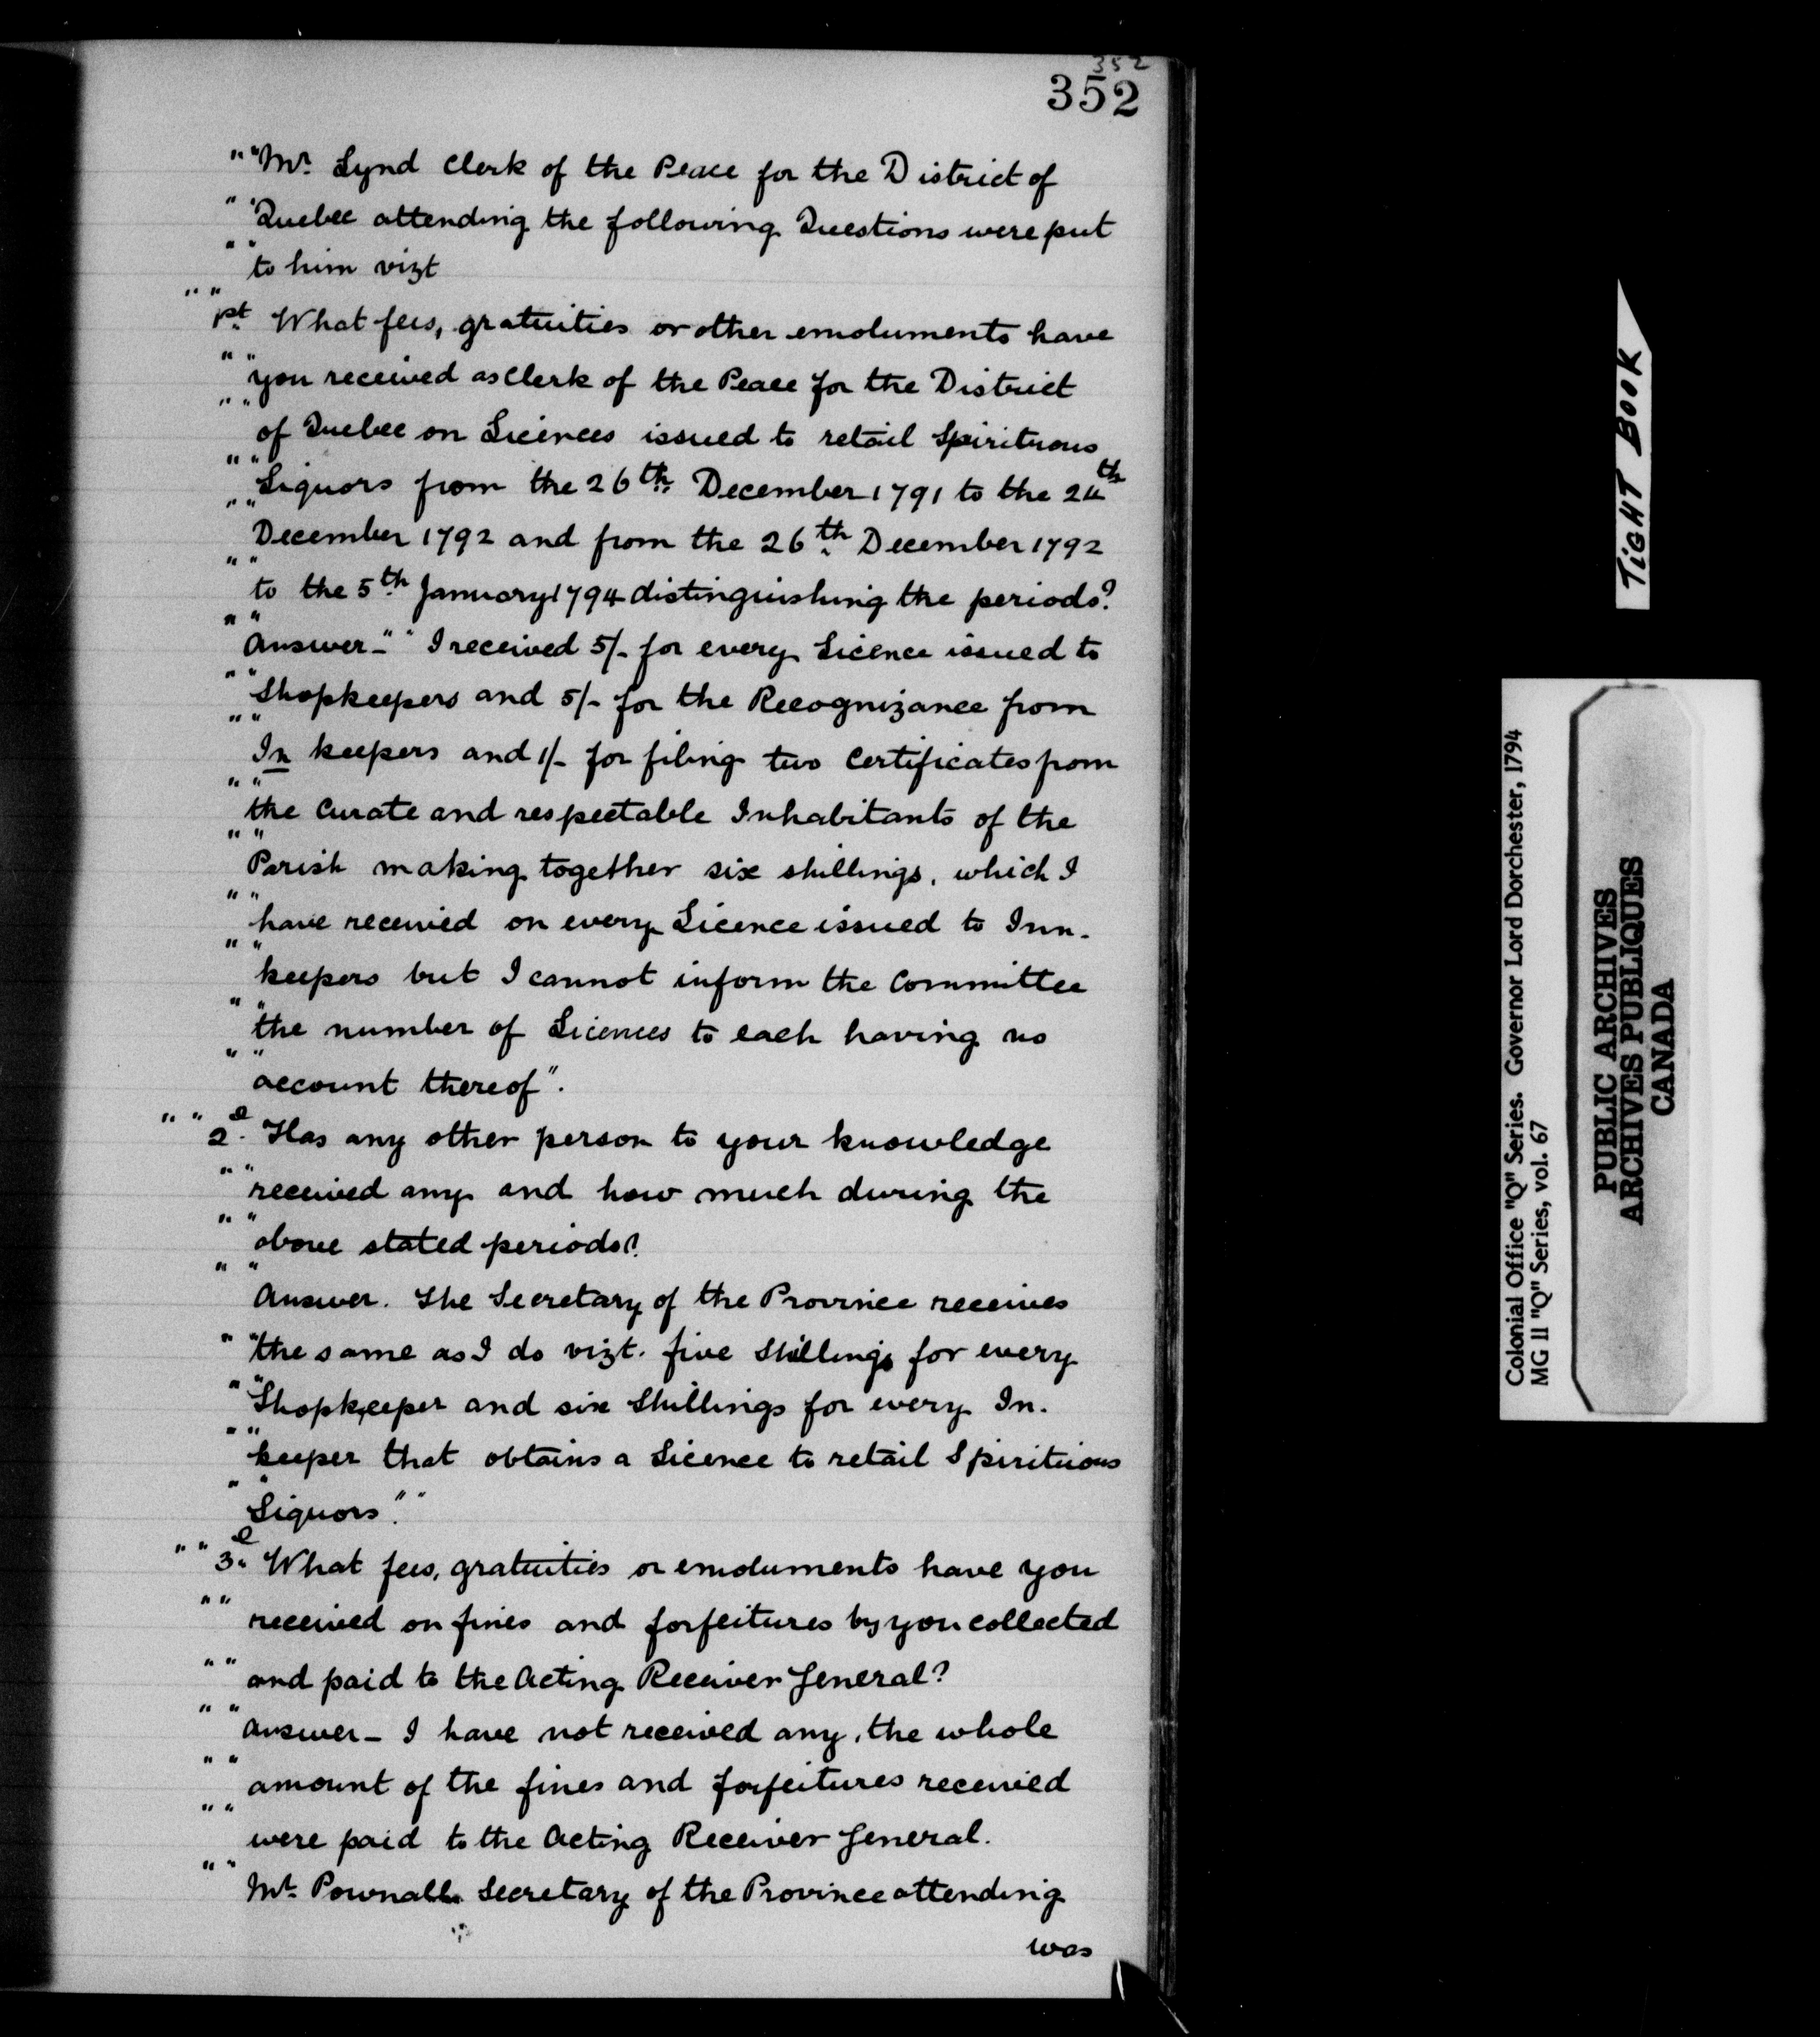 352
352
" "Mr. Lynd Clerk of the Peace for the District of
" "Quebec attending the following Questions were put
" "to him vizt
" " 1st. What fees, gratuities or other emoluments have
" " you received as Clerk of the Peace for the District
" " of Quebec on Licences issued to retail Spirituous
" " Liquors from the 26th. December 1791 to the 24th
" " December 1792 and from the 26th. December 1792
" " to the 5th. January 1794 distinguishing the periods?
" " Answer - " " I received 5/- for every Licence issued to
" " Shopkeepers and 5/- for the Recognizance from
" " In keepers and 1/- for filing two Certificates from
" " the Curate and respectable Inhabitants of the
" " Parish making together six shillings, which I
" " have received on every Licence issued to Inn-
" " keepers but I cannot inform the Committee
" " the number of Licences to each having no
" " account thereof".
" " 2d. Has any other person to your knowledge
" " received any and how much during the
" " above stated periods?
" " Answer. The Secretary of the Province receives
" " the same as I do vizt. five Shillings for every
" " Shopkeeper and six Shillings for every In-
" " keeper that obtains a Licence to retail Spirituous
" " Liquors." "
" " 3d. What fees, gratuities or emoluments have you
" " received on fines and forfeitures by you collected
" " and paid to the Acting Receiver General?
" " Answer - I have not received any, the whole
" " amount of the fines and forfeitures received
" " were paid to the Acting Receiver General.
" " Mr. Pownall Secretary of the Province attending
was
TIGHT BOOK
Colonial Office "Q" Series. Governor Lord Dorchester, 1794
MG 11 "Q" Series, vol. 67
PUBLIC ARCHIVES
ARCHIVES PUBLIQUES
CANADA